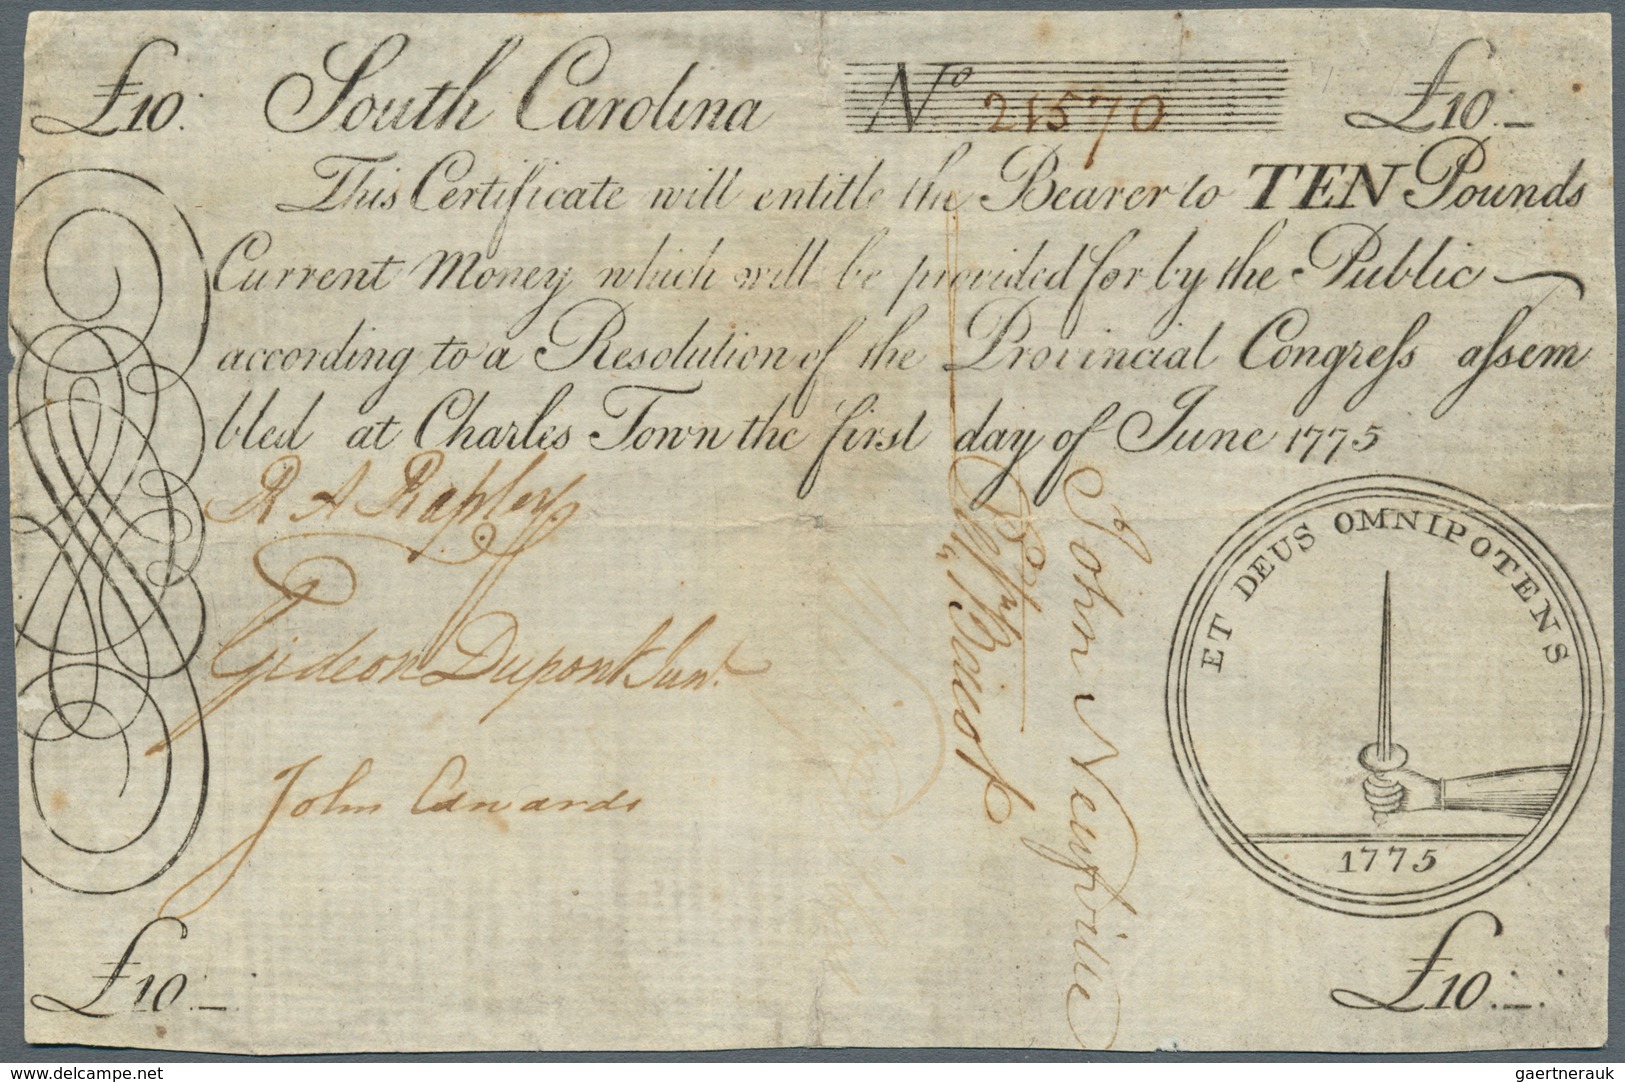 £10. South Carolina No 21570 £10.
This Certificate will entitle the Bearer to TEN Pounds
Current Money which will be provided for by the Public
according to a Resolution of the Provincial Congreſs aſsem
bled at Charles Town the first day of June 1775
R A Rapley
Gideon Dupont Junr.
John Edwards
John Neufville
ET DEUS OMNIPOTENS
1775
£10. £10.
www.delcampe.net gaertnerauk